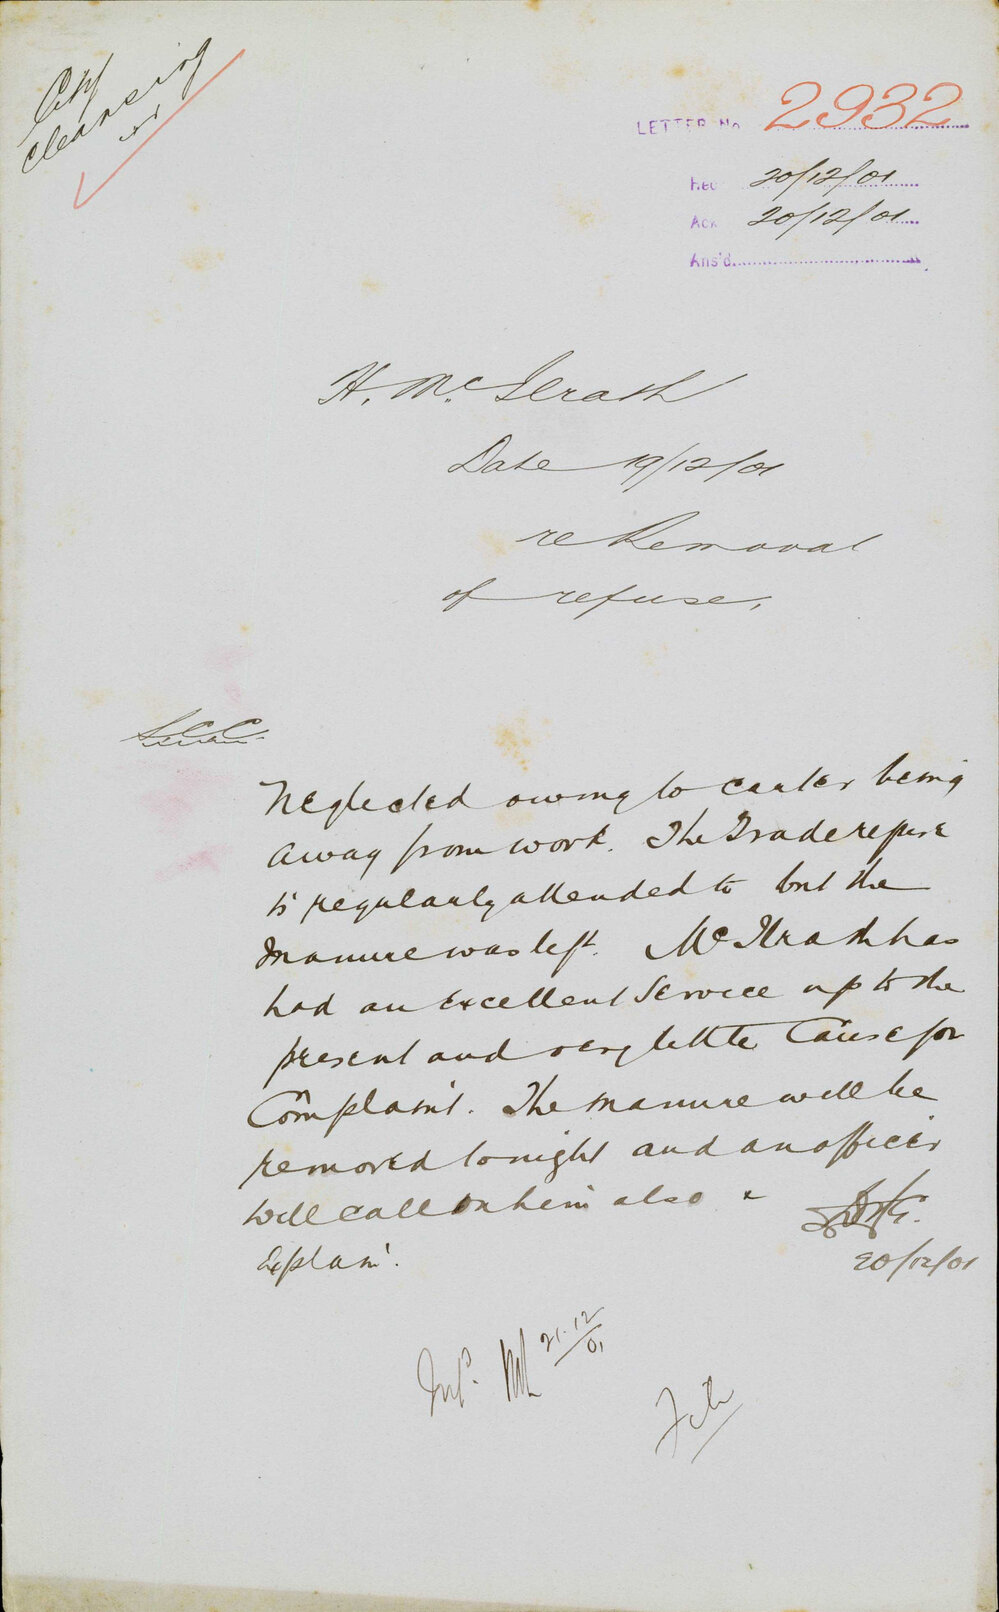 City
cleansing
LETTER No 2932
Rec 20/12/01
Ack 20/12/01
Ans'd
H. McIlrath
Date 19/12/01
re Removal
of refuse.
Neglected owing to carter being
away from work. The Trade refuse
is regularly attended to but the
manure was left. McIlrath has
had an excellent service up to the
present and very little Cause for
Complaint. The manure will be
removed tonight and an officer
will call on him also &
Explain.
20/12/01
Inf. 21.12/01
File